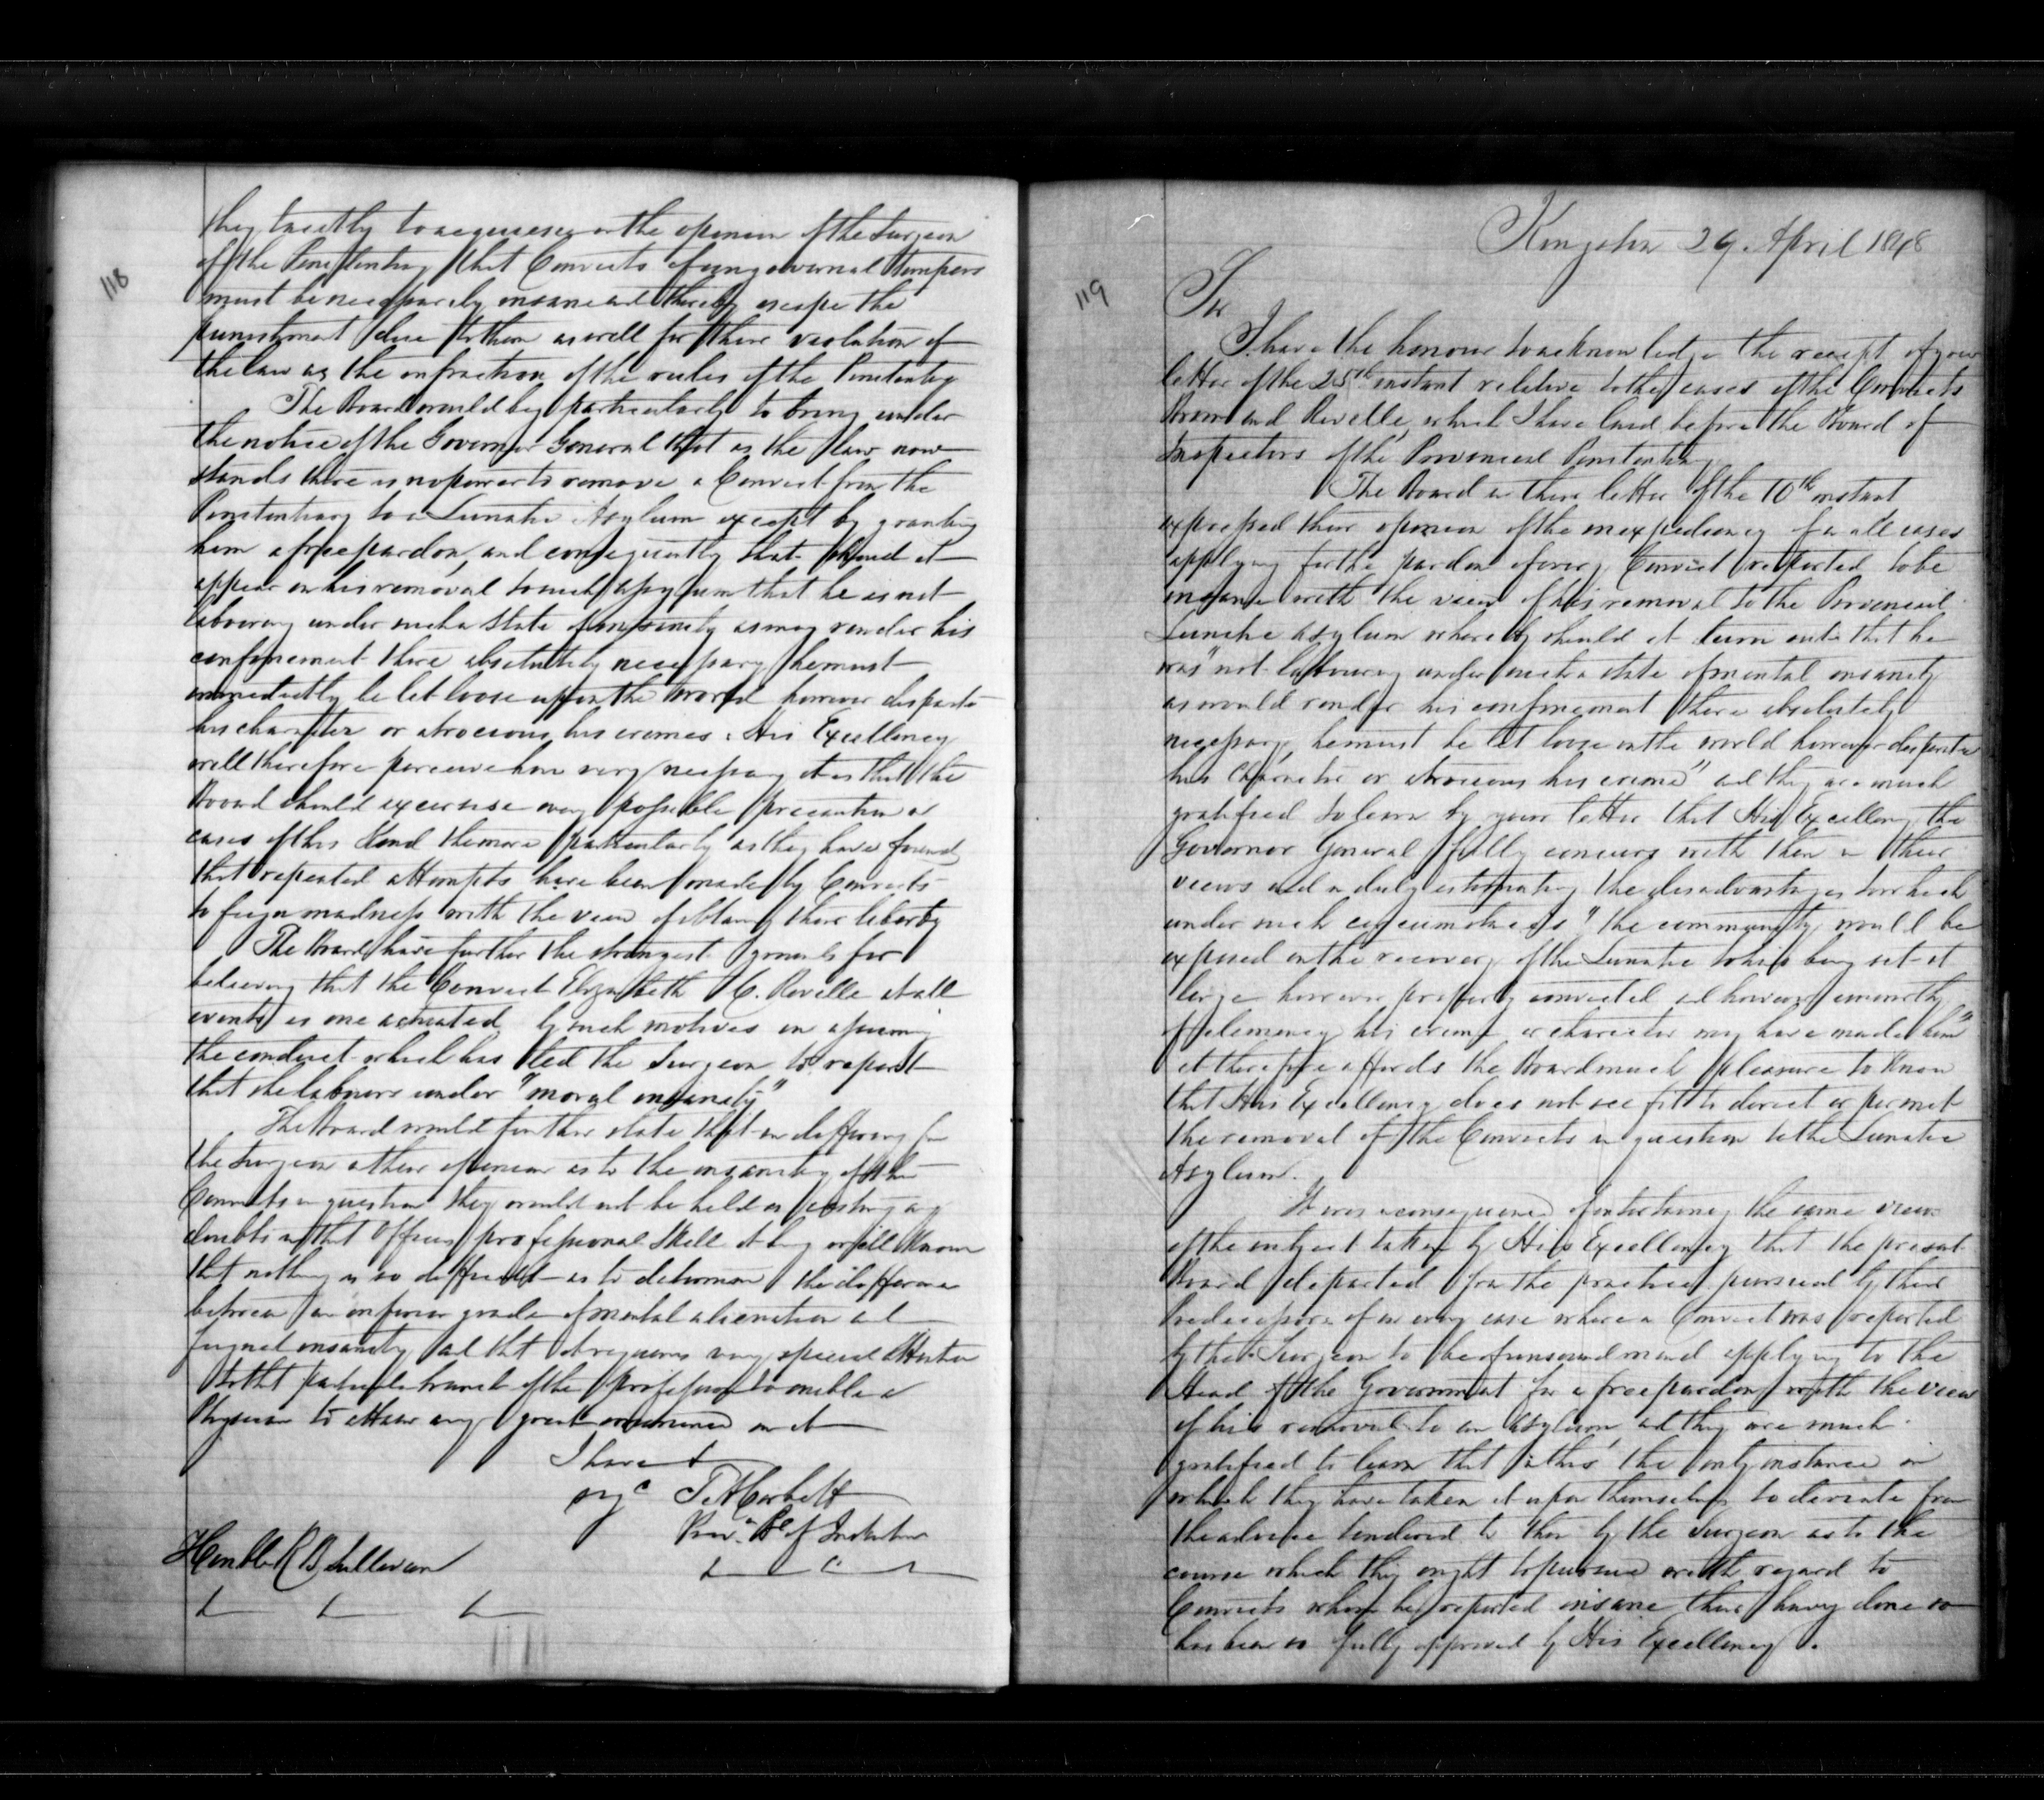 118
they tacitly to acquiesce in the opinion of the Surgeon
of the Penitentiary that Convicts of ungovernal tempers
must be necessarily insane and thereby escape the
punishment due to them as well for there violation of
the law as the infraction of the rules of the Penitentiary
The Board would beg particularly to bring under
the notice of the Governor General that as the law now
stands there is no power to remove a Convict from the
Penitentiary to a Lunatic Asylum except by granting
him a free pardon, and consequently that should it
appear on his removal to such asylum that he is not
labouring under such a state of insanity as may render his
confinement there absolutely necessary he must
immediately be let loose upon the world however desperate
his character or atrocious his crimes. His Excellency
will therefore perceive how very necessary it is that the
Board should excercise every possible precaution in
cases of this kind the more particularly as they have found
that repeated attempts have been made by Convicts
to feign madness with the view of obtaining their liberty
The Board have further the strongest grounds for
believing that the Convict Elizabeth C. Revelle at all
events is one actuated by such motives in assuming
the conduct which has led the Surgeon to report
that she labours under "moral insanity"
The Board would further state that in differing from
the Surgeon in their opinion as to the insanity of the
Convicts in question they would not be held as casting any
doubts on that Officers professional skill it being well known
that nothing is so difficult as to determine the difference
between an inferior grade of mental alienation and
feigned insanity and that it requires very special attention
to that particular branch of the profession to enable a
Physician to attain any great eminence in it
I have &
&c T A Corbett
Pres. Bd of Inspectors
Honble R B Sullivan
119
Kingston 29 April 1848
Sir
I have the honour to acknowledge the receipt of your
letter of the 25th instant relative to the cases of the Convicts
Brown and Revelle, which I have laid before the Board of
Inspectors of the Provincial Penitentiary
The Board in their letter of the 10th instant
expressed their opinion of the inexpediency of in all cases
applying for the pardon of every Convict reported to be
insane with the view of his removal to the Provincial
Lunatic Asylum whereby should it turn out that he
was "not labouring under such a state of mental insanity
as would render his confinement there absolutely
necessary, he must be let loose on the world however desperate
his character or atrocious his crime" and they are much
gratified to learn by your letter that His Excellency the
Governor General fully concurs with them in their
views and in duly estimating the disadvantages to which
under such circumstances "the community would be
exposed on the recovery of the Lunatic to his being set at
large however properly convicted and however unworthy
of clemency his crime or character may have made him"
it therefore affords the Board much pleasure to know
that His Excellency does not see fit to direct or permit
the removal of the Convicts in question to the Lunatic
Asylum.
It was in consequence of entertaining the same view
of the subject taken by His Excellency that the present
Board departed from the practice pursued by their
Predecessors of in every case where a Convict was reported
by the Surgeon to be of unsound mind applying to the
Head of the Government for a free pardon with the view
of his removal to an Asylum and they are much
gratified to learn that in this the only instance in
which they have taken it upon themselves to deviate from
the advice tendered to them by the Surgeon as to the
course which they ought to pursue with regard to
Convicts whom he reported insane their having done so
has been so fully approved by His Excellency.